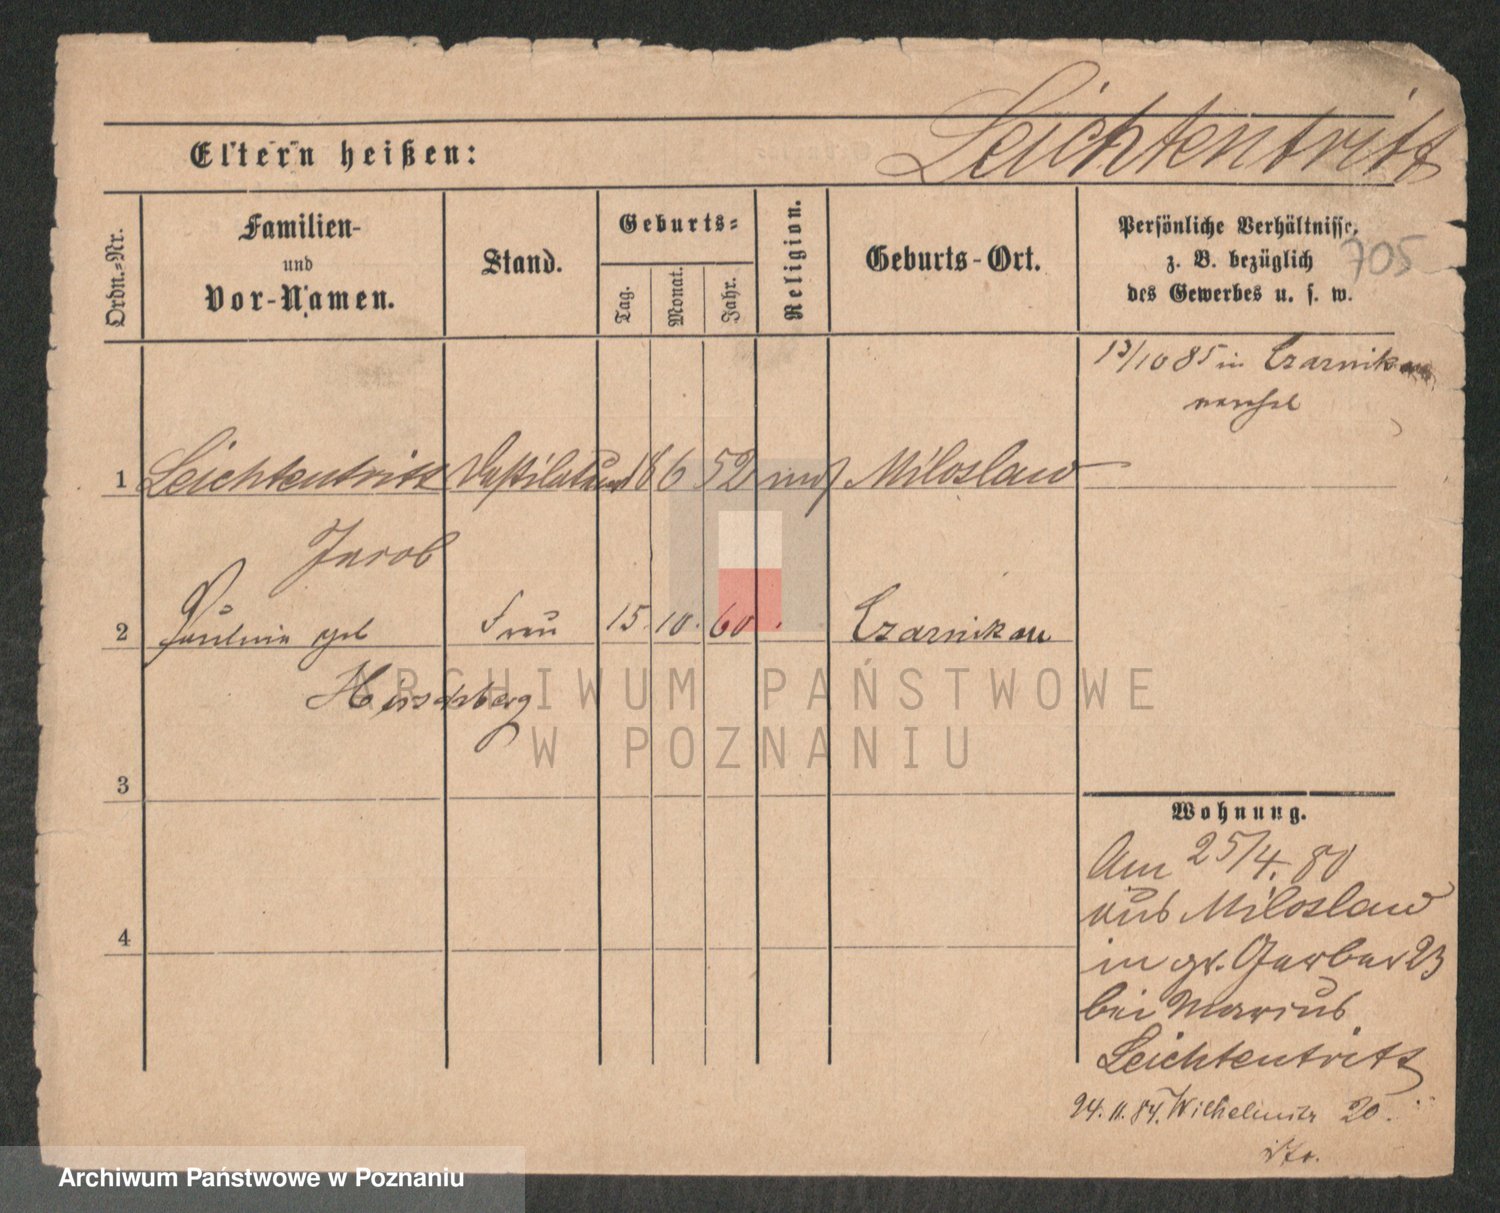 Leichtentritt
Eltern heißen:
Ordn.-Nr.
Familien-
und
Vor-Namen.
Stand.
Geburts-
Tag.
Monat.
Jahr.
Religion.
Geburts-Ort.
Persönliche Verhältnisse,
z. B. bezüglich
des Gewerbes u. s. w.
705
13/10 85 in Czarnikau
1 Leichtentritt 6 52 mos Miloslaw
Jacob
2 Pauline geb Frau 15. 10. 60 Czarnikau
Herschberg
3
4
Wohnung.
Am 25/4. 80
aus Miloslaw
in gr. Gerber 23
bei Marcus
Leichtentritt
24. 11. 84. Wilhelmstr 20.
ARCHIWUM PAŃSTWOWE
W POZNANIU
Archiwum Państwowe w Poznaniu